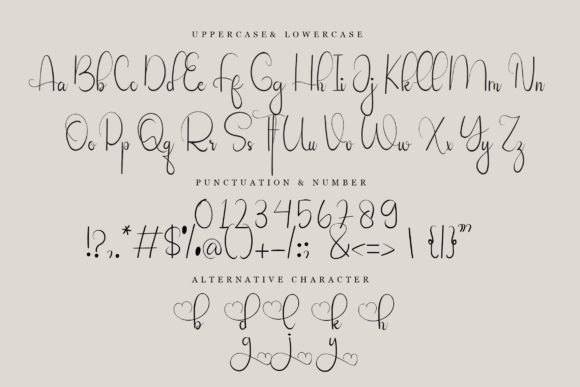 UPPERCASE& LOWERCASE
Aa Bb Cc Dd Ee Ff Gg Hh Ii Jj Kk Ll Mm Nn
Oo Pp Qq Rr Ss Tt Uu Vv Ww Xx Yy Zz
PUNCTUATION & NUMBER
0123456789
!?,.*#$%@()+-/:; &<=> \ {|}"'
ALTERNATIVE CHARACTER
b d l k h
g j y